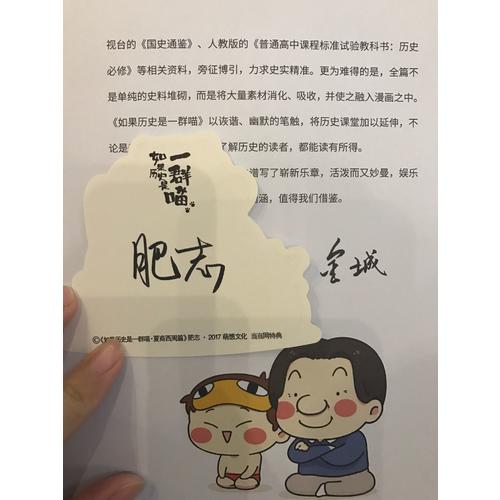 视台的《国史通鉴》、人教版的《普通高中课程标准试验教科书：历史
必修》等相关资料，旁征博引，力求史实精准。更为难得的是，全篇不
是单纯的史料堆砌，而是将大量素材消化、吸收，并使之融入漫画之中。
《如果历史是一群喵》以诙谐、幽默的笔触，将历史课堂加以延伸，不
论是
了解历史的读者，都能读有所得。
谱写了崭新乐章，活泼而又妙曼，娱乐
涵，值得我们借鉴。
如果历史是
一群喵
肥志
金城
©《如果历史是一群喵·夏商西周篇》肥志·2017 萌悠文化 当当网特典